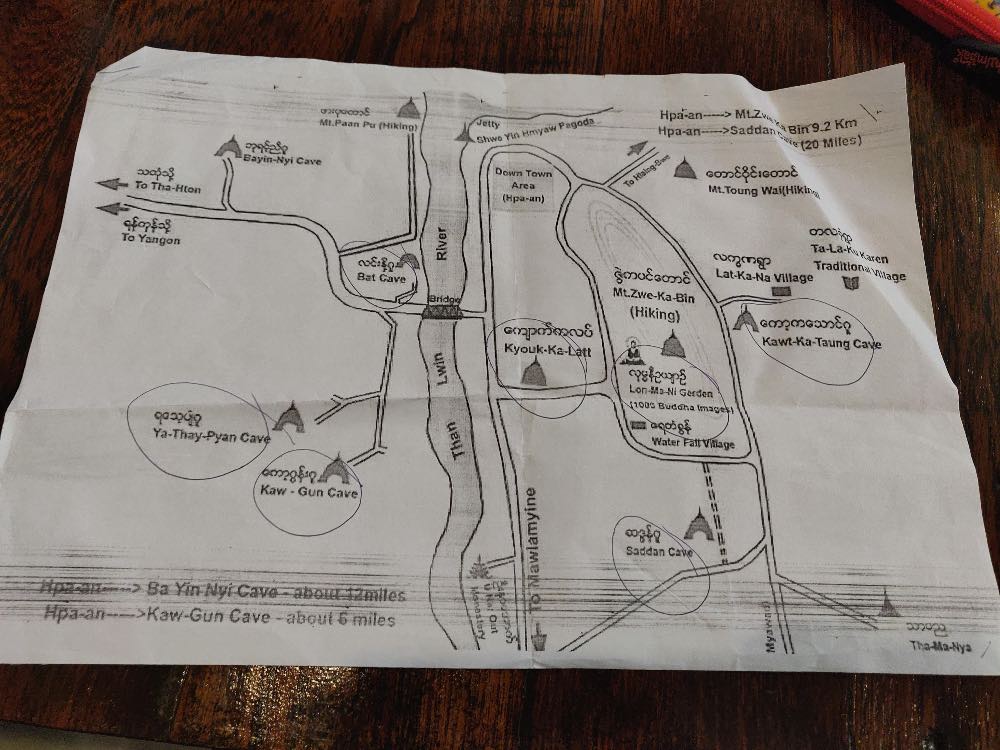 ဖားပုတောင်
Mt.Paan Pu (Hiking)
Jetty
Shwe Yin Hmyaw Pagoda
Hpa-an-----> Mt.Zwe Ka Bin 9.2 Km
Hpa-an---->Saddan Cave (20 Miles)
ဘုရင့်ညီဂူ
Bayin-Nyi Cave
သထုံသို့
To Tha-Hton
ရန်ကုန်သို့
To Yangon
Down Town
Area
(Hpa-an)
To Hlaing-Bwe
တောင်ဝိုင်းတောင်
Mt.Toung Wai(Hiking)
လင်းနို့ဂူ
Bat Cave
River
Bridge
ဇွဲကပင်တောင်
Mt.Zwe-Ka-Bin
(Hiking)
လက္ခဏရွာ
Lat-Ka-Na Village
Ta-La-Ku Karen
Traditional Village
ကျောက်ကလပ်
Kyouk-Ka-Latt
ကော့ကသောင်ဂူ
Kawt-Ka-Taung Cave
လုမ္ဗနီဥယျာဉ်
Lon-Ma-Ni Gerden
(1000 Buddha Images)
ရေတံခွန်
Water Fall Village
Lwin
Than
ရသေ့ပျံဂူ
Ya-Thay-Pyan Cave
ကော့ဂွန်းဂူ
Kaw - Gun Cave
ဆဒ္ဒန်ဂူ
Saddan Cave
To Mawlamyine
Monastery
Hpa-an-----> Ba Yin Nyi Cave - about 12miles
Hpa-an----->Kaw-Gun Cave - about 6 miles
သာမည
Tha-Ma-Nya